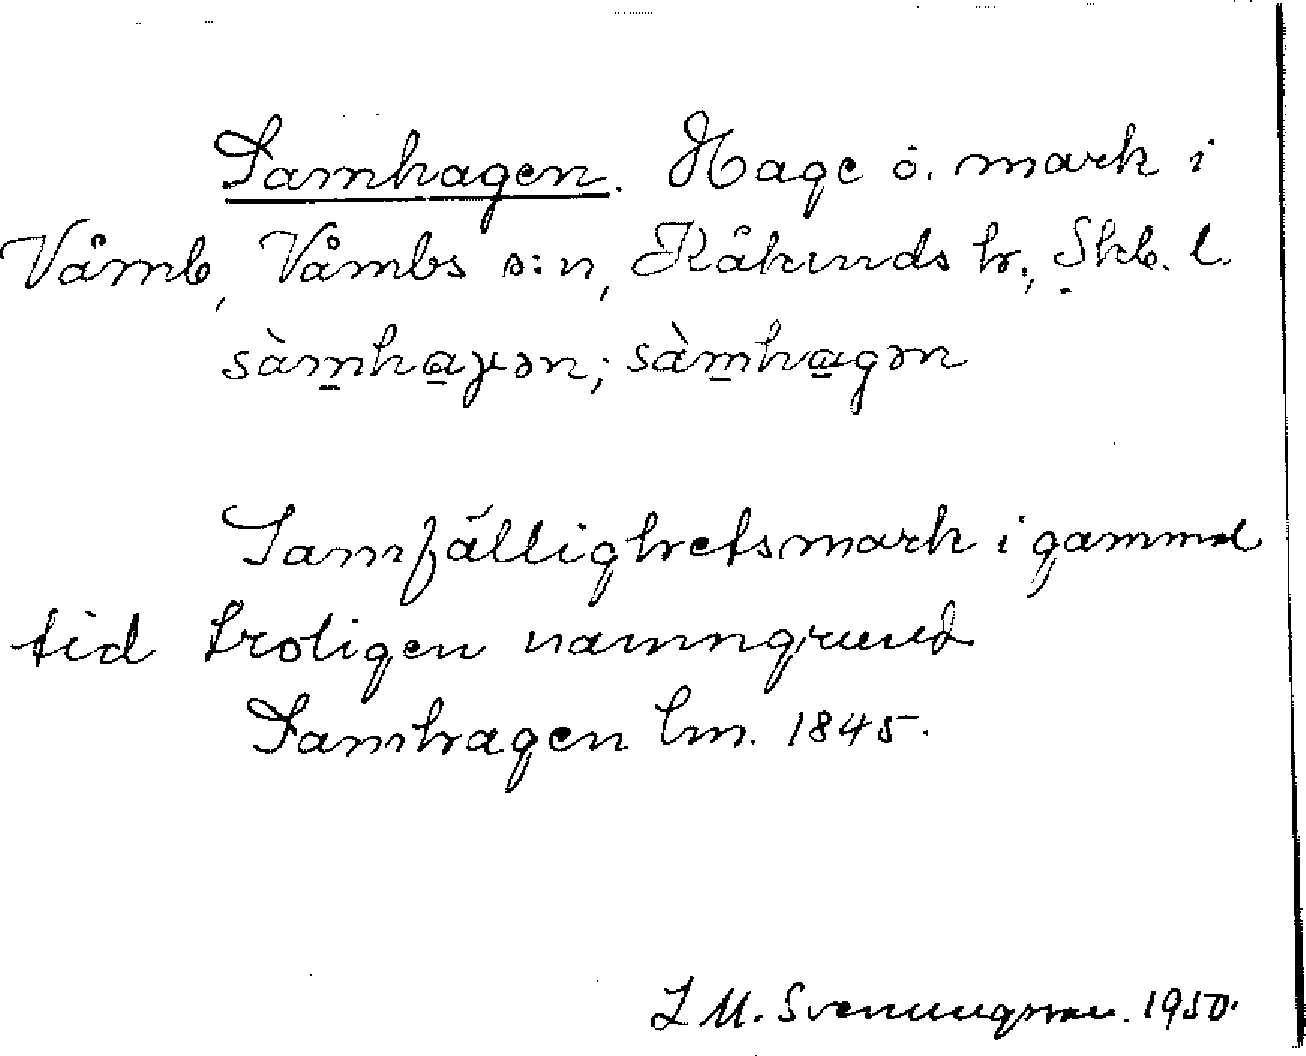 Samhagen. Hage o. mark i
Våmb, Våmbs s:n, Kåkinds hr., Skb. l.
sàmhaγən; sàmhagən
Samfällighetsmark i gammal
tid troligen namngrund
Samhagen lm. 1845.
L M. Svenungsson. 1950.